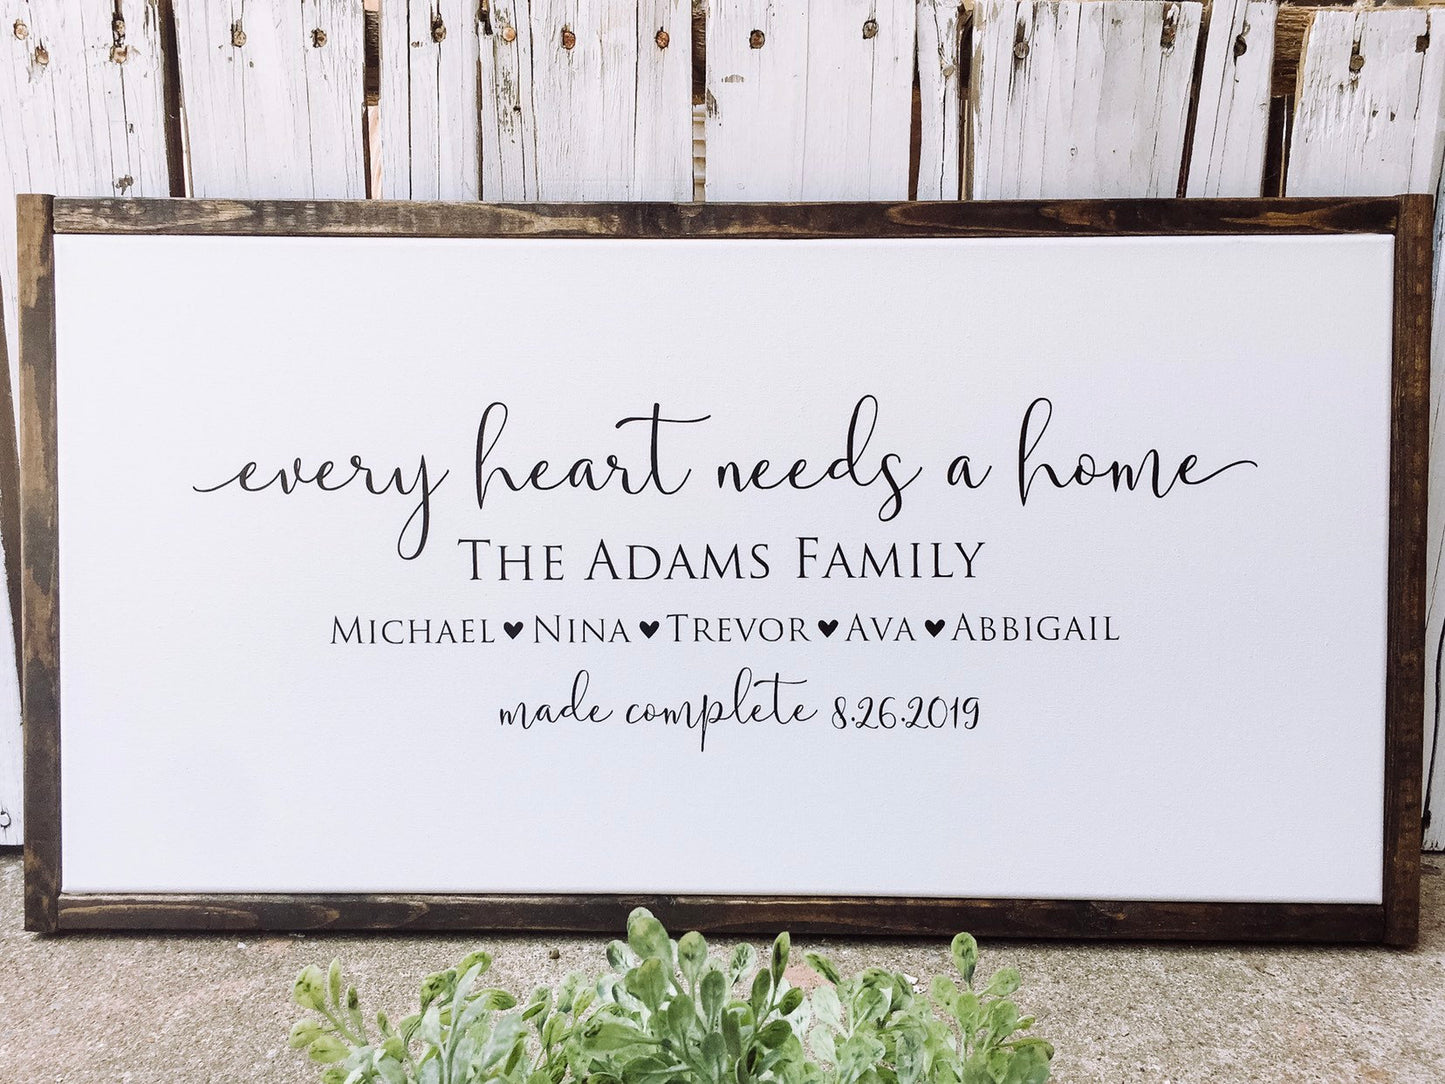 every heart needs a home
THE ADAMS FAMILY
MICHAEL♥NINA♥TREVOR♥AVA♥ABBIGAIL
made complete 8.26.2019